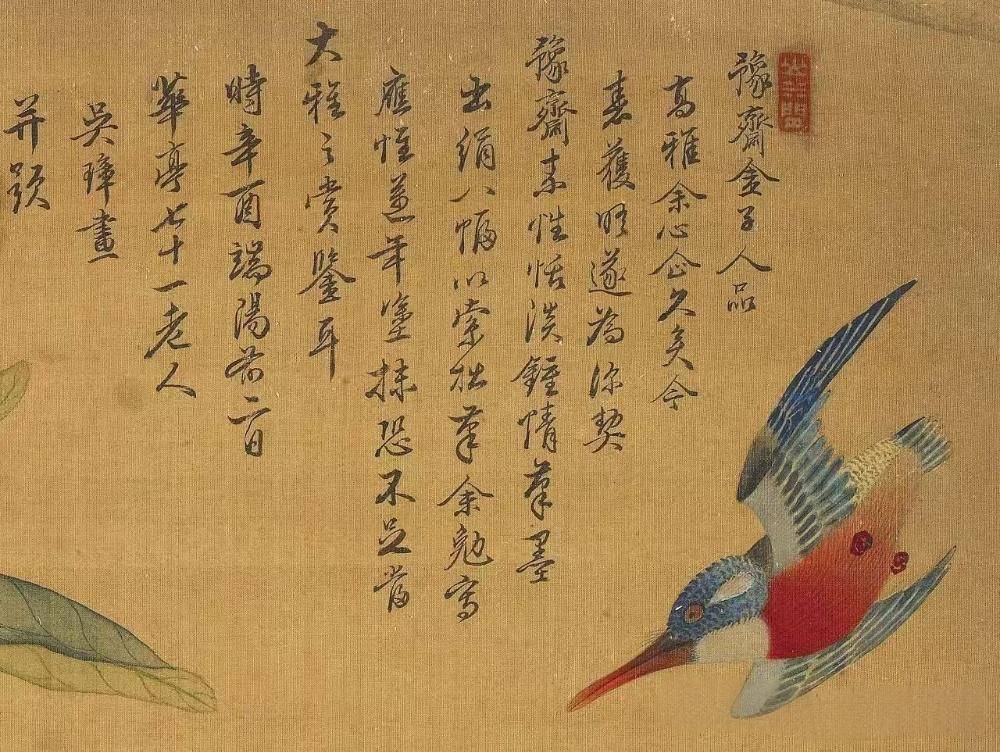 豫齋金子人品
高雅余心企久矣今
春獲晤遂為深契
豫齋素性恬淡鍾情筆墨
出絹八幅以索拙筆余勉寫
應惟年塗抹恐不足當
大雅之賞鑒耳
時辛酉端陽前二日
華亭七十一老人
吳璋畫
并題